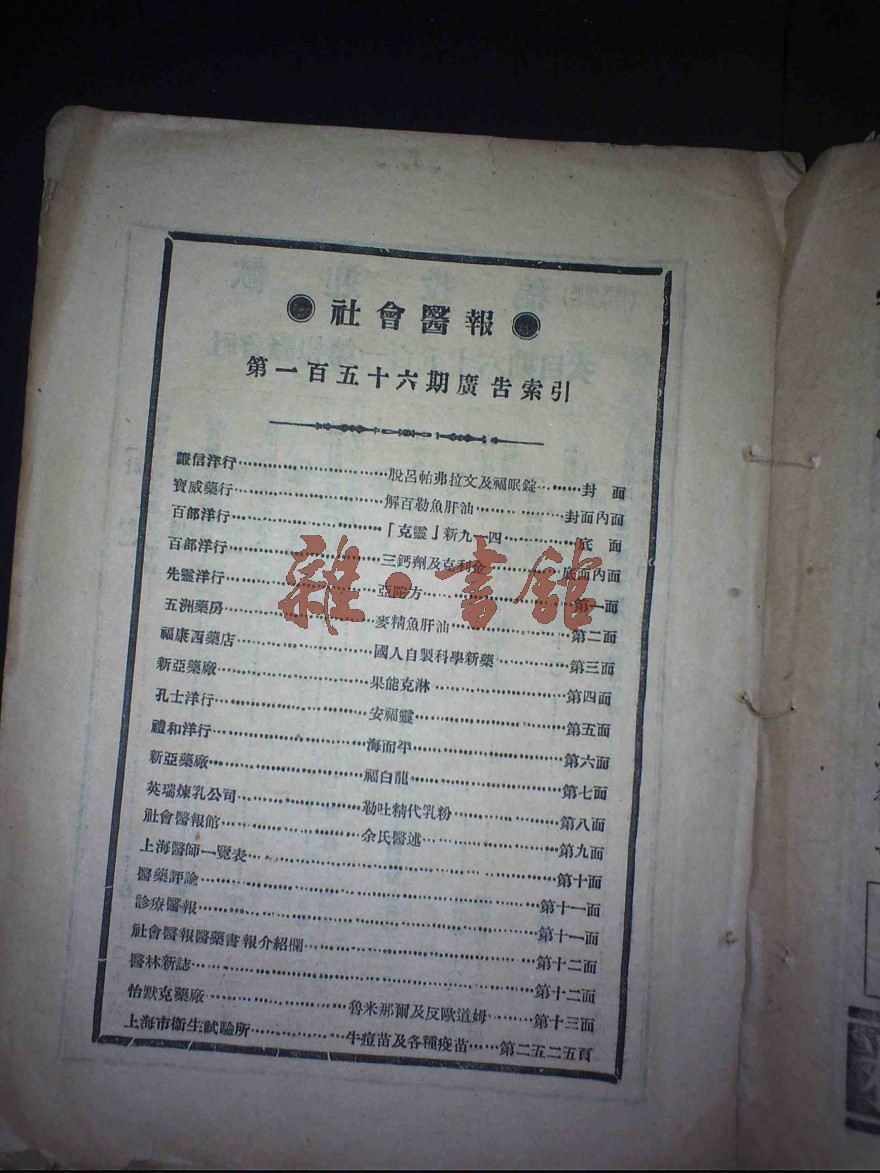 ● 社會醫報 ●
第一百五十六期廣告索引
謙信洋行……………………脫呂帕弗拉文及福眠錠………封 面
寶威藥行……………………解百勒魚肝油……………封面內面
百部洋行……………………「克靈」新九一四……………底 面
百部洋行……………………三鈣劑及克利金……………底面內面
先靈洋行……………………亞 方……………第一面
五洲藥房……………………麥精魚肝油……………第二面
福康西藥店……………………國人自製科學新藥……………第三面
新亞藥廠……………………果能克淋……………第四面
孔士洋行……………………安福靈……………第五面
禮和洋行……………………海而平……………第六面
新亞藥廠……………………福白龍……………第七面
英瑞煉乳公司……………………勒吐精代乳粉……………第八面
社會醫報館……………………余氏醫述……………第九面
上海醫師一覽表……………………第十面
醫藥評論……………………第十一面
診療醫報……………………第十一面
社會醫報醫藥書報介紹欄……………………第十二面
醫林新誌……………………第十二面
怡默克藥廠……………………魯米那爾及反歐道姆………第十三面
上海市衛生試驗所……………牛痘苗及各種疫苗……第二五二五頁
雜·書館